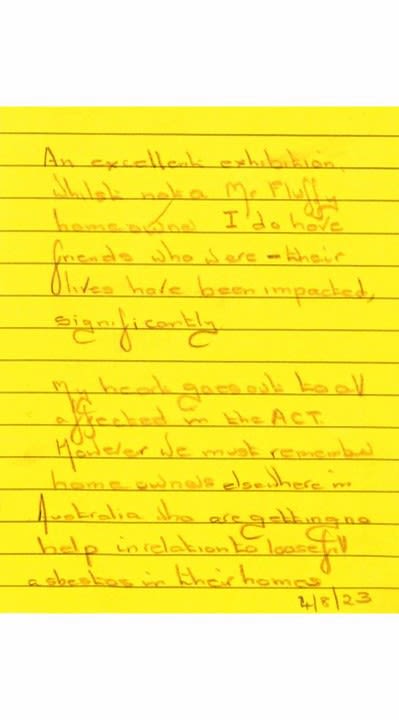 An excellent exhibition.
Whilst not a Mr Fluffy
home owner I do have
friends who were - their
lives have been impacted,
significantly
My heart goes out to all
affected in the ACT.
However we must remember
home owners elsewhere in
Australia who are getting no
help in relation to loosefill
asbestos in their homes
4/8/23